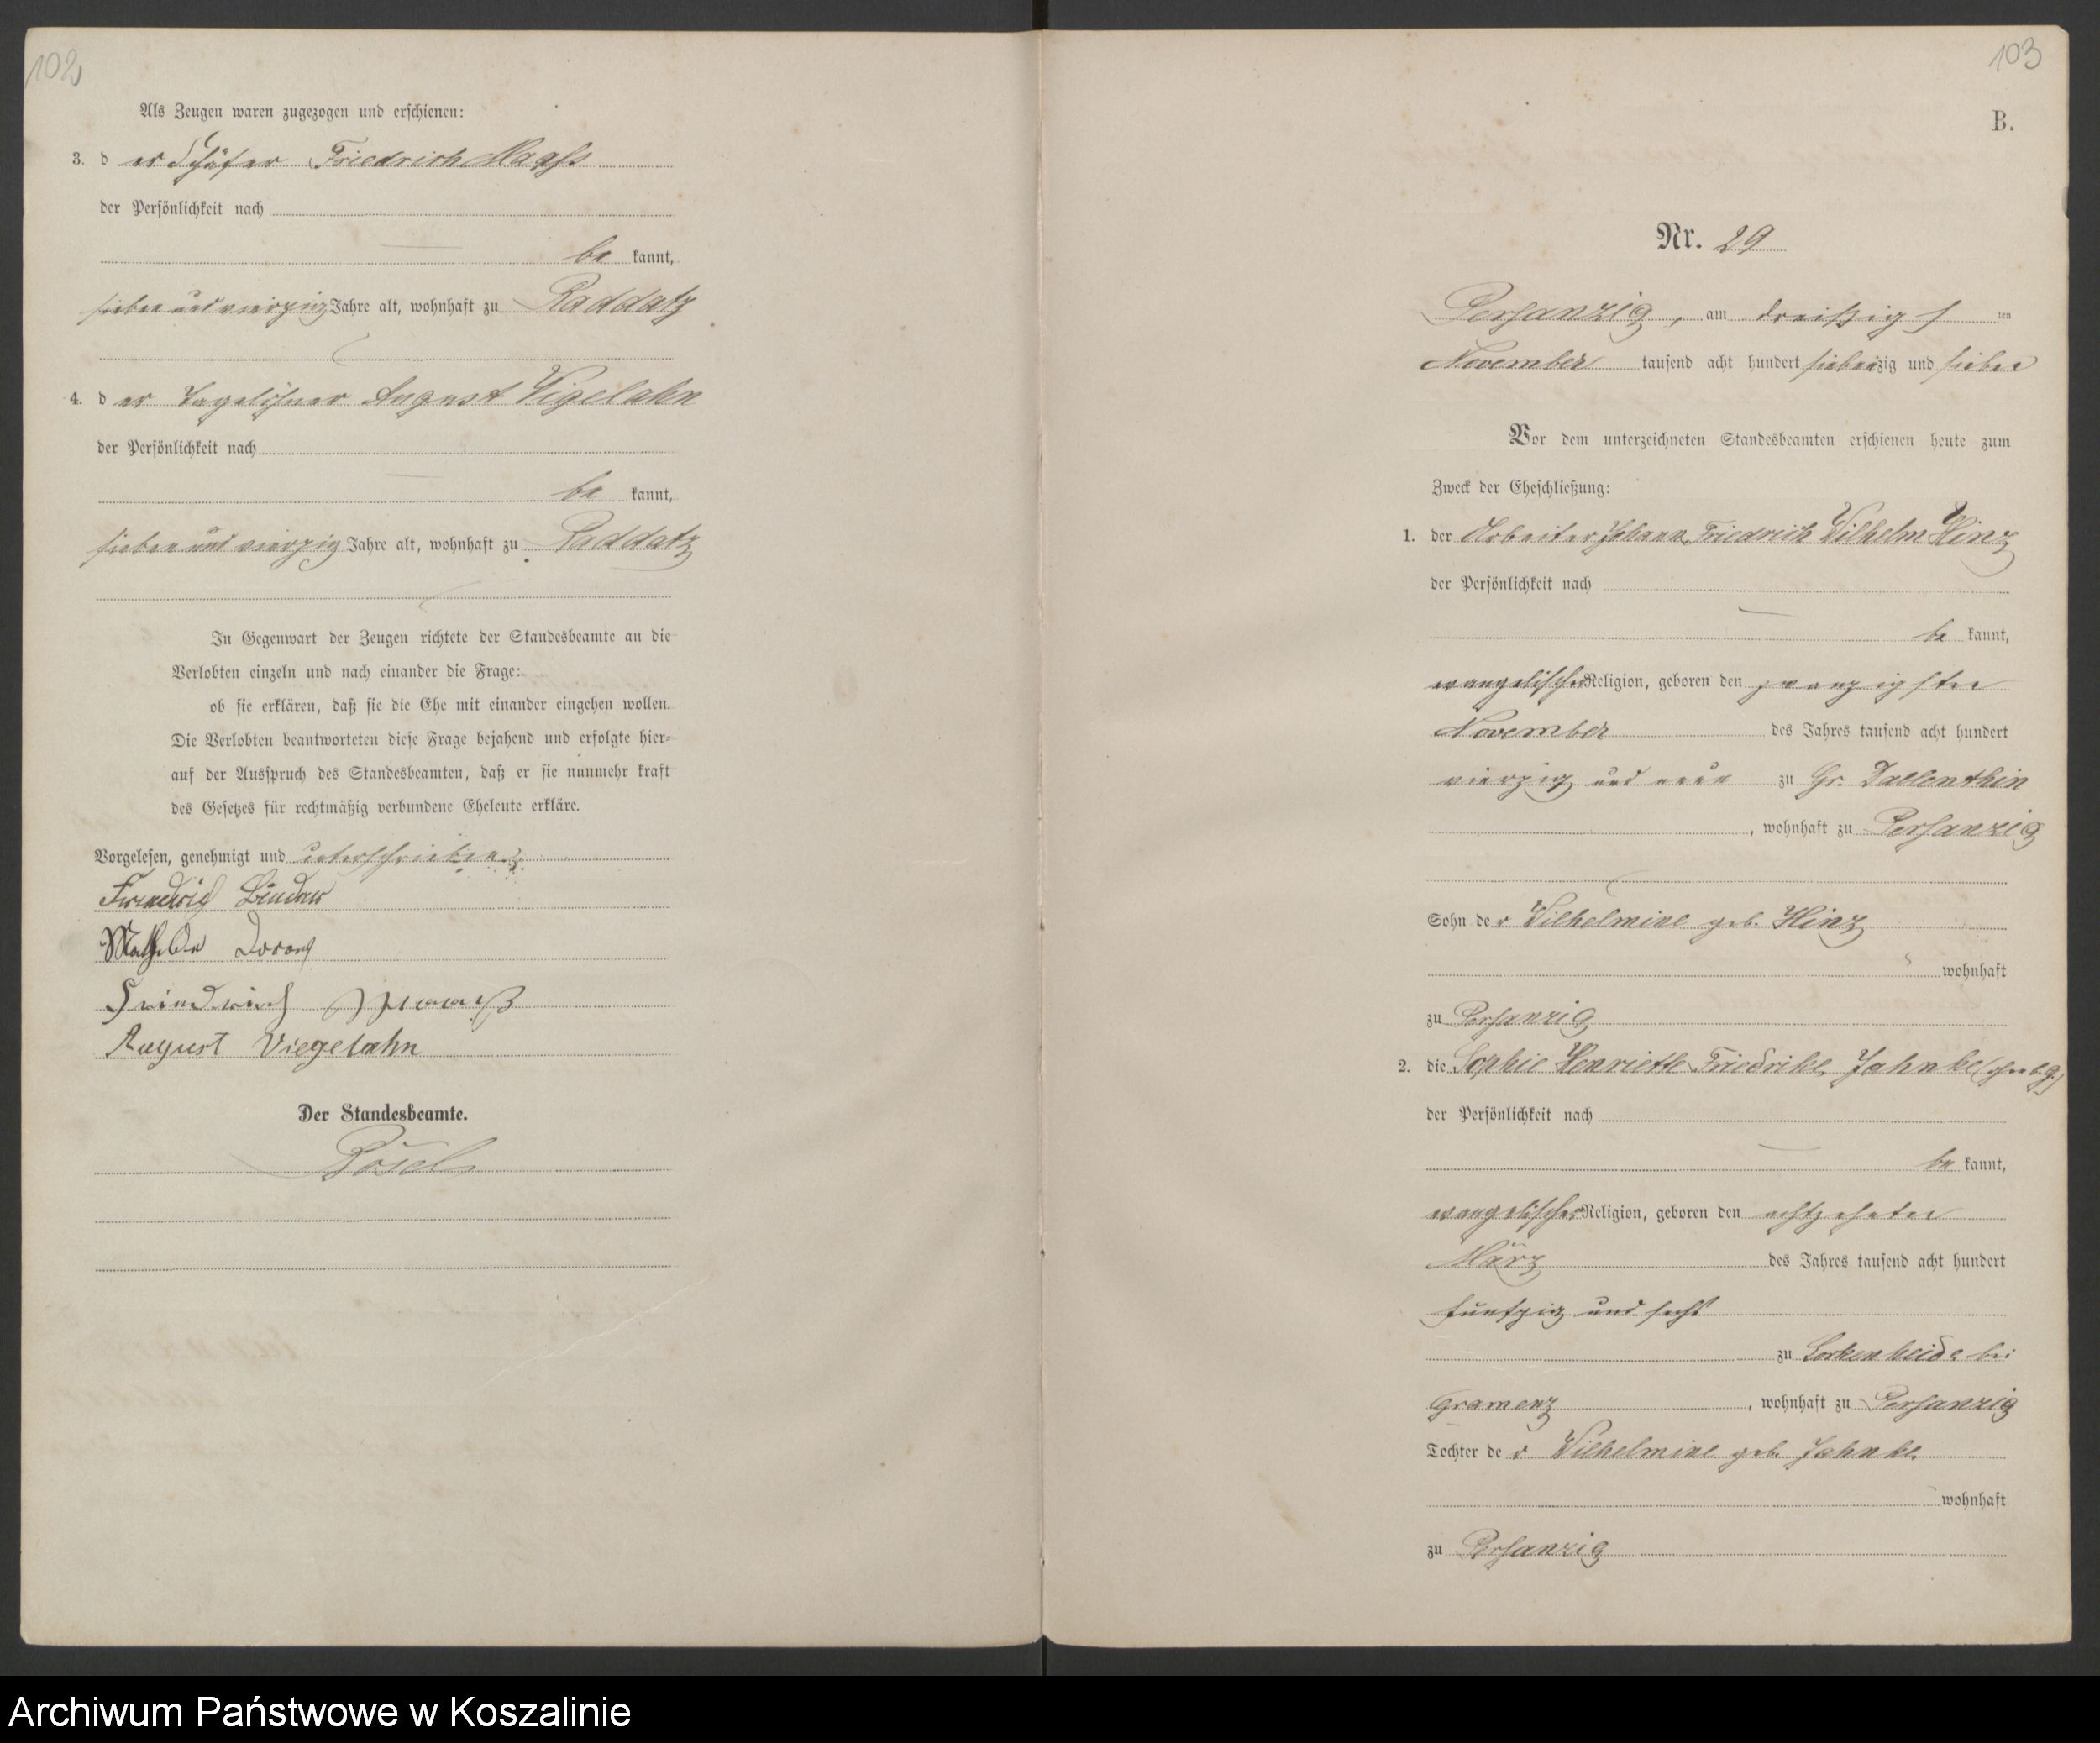 102
Als Zeugen waren zugezogen und erschienen:
3. d er Schäfer Friedrich Maaß
der Persönlichkeit nach
be kannt,
sieben und vierzig Jahre alt, wohnhaft zu Raddatz
4. d er Tagelöhner August Vigelahn
der Persönlichkeit nach
be kannt,
sieben und vierzig Jahre alt, wohnhaft zu Raddatz
In Gegenwart der Zeugen richtete der Standesbeamte an die
Verlobten einzeln und nach einander die Frage:
ob sie erklären, daß sie die Ehe mit einander eingehen wollen.
Die Verlobten beantworteten diese Frage bejahend und erfolgte hier-
auf der Ausspruch des Standesbeamten, daß er sie nunmehr kraft
des Gesetzes für rechtmäßig verbundene Eheleute erkläre.
Vorgelesen, genehmigt und unterschrieben
Friedrich
Friedrich Maaß
August Viegelahn
Der Standesbeamte.
Pösel
103
B.
Nr. 29
Persanzig, am dreißigsten
November tausend acht hundert siebenzig und sieben
Vor dem unterzeichneten Standesbeamten erschienen heute zum
Zweck der Eheschließung:
1. der Arbeiter Johann Friedrich Wilhelm Hinz
der Persönlichkeit nach
be kannt,
evangelischer Religion, geboren den zwanzigsten
November des Jahres tausend acht hundert
vierzig und neun zu Gr. Dallenthin
, wohnhaft zu Persanzig
Sohn der Wilhelmine geb. Hinz
wohnhaft
zu Persanzig
2. die Sophie Henriette Friedrike Jahnke
der Persönlichkeit nach
be kannt,
evangelischer Religion, geboren den achtzehnten
März des Jahres tausend acht hundert
fünfzig und sechs
zu Lorkenheide bei
Gramenz, wohnhaft zu Persanzig
Tochter der Wilhelmine geb. Jahnke
wohnhaft
zu Persanzig
Archiwum Państwowe w Koszalinie